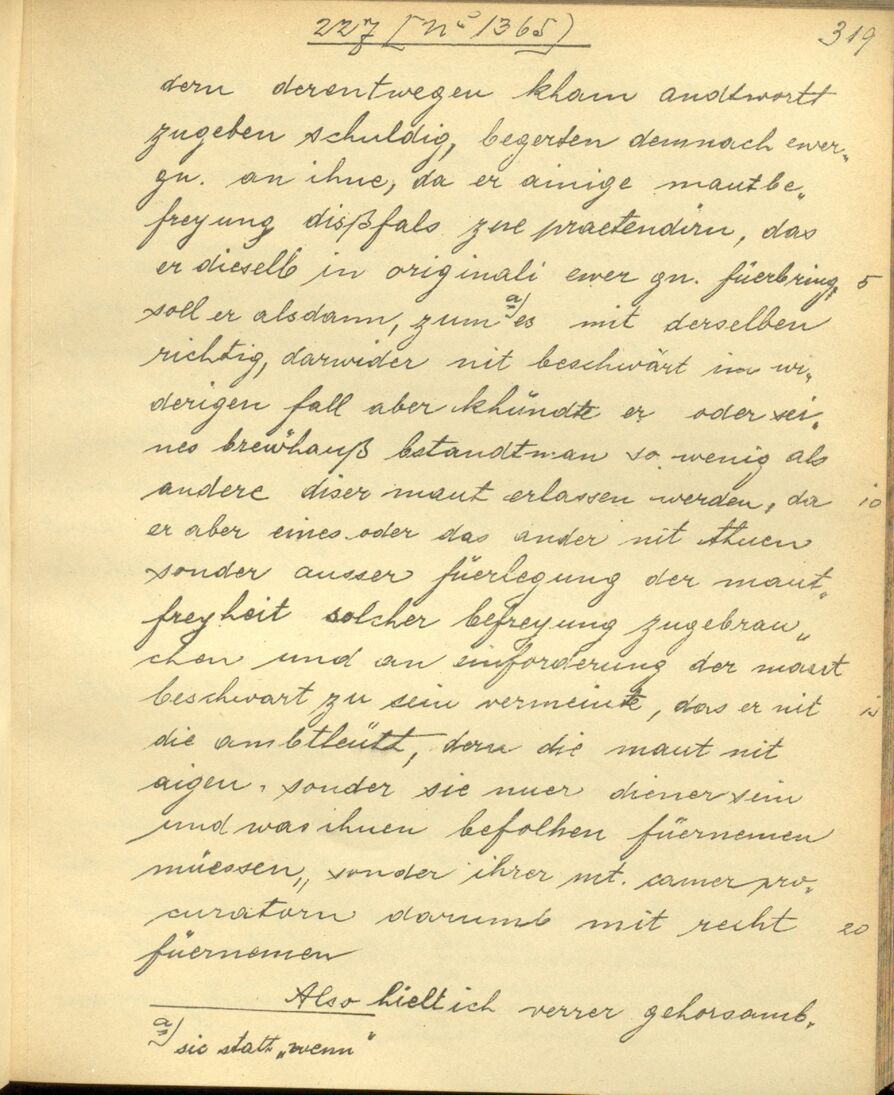 227 [Nº 1365]
319
dern derentwegen kham andtwortt
zugeben schuldig, begerten demnach ewer„
gn. an ihne, da er ainige mautbe„
freyung dißfals zue praetendirn, das
er dieselb in originali ewer gn. füerbring, 5
soll er alsdann, zum a) es mit derselben
richtig, darwider nit beschwärt im wi„
derigen fall aber khündte er oder sei„
nes brewhauß bstandtman so wenig als
andere diser maut erlassen werden, da 10
er aber eines oder das ander nit thuen
sonder ausser füerlegung der maut„
freyheit solcher befreyung zugebrau„
chen und an einforderung der maut
beschwart zu sein vermeinte, das er nit 15
die ambtleütt, dern die maut nit
aigen, sonder sie nuer diener sein
und was ihnen befolhen füernemen
müessen„ sonder ihrer mt. camerpro„
curatorn darumb mit recht 20
füernemen
Also hielt ich verrer gehorsamb„
a) sic statt „wenn"